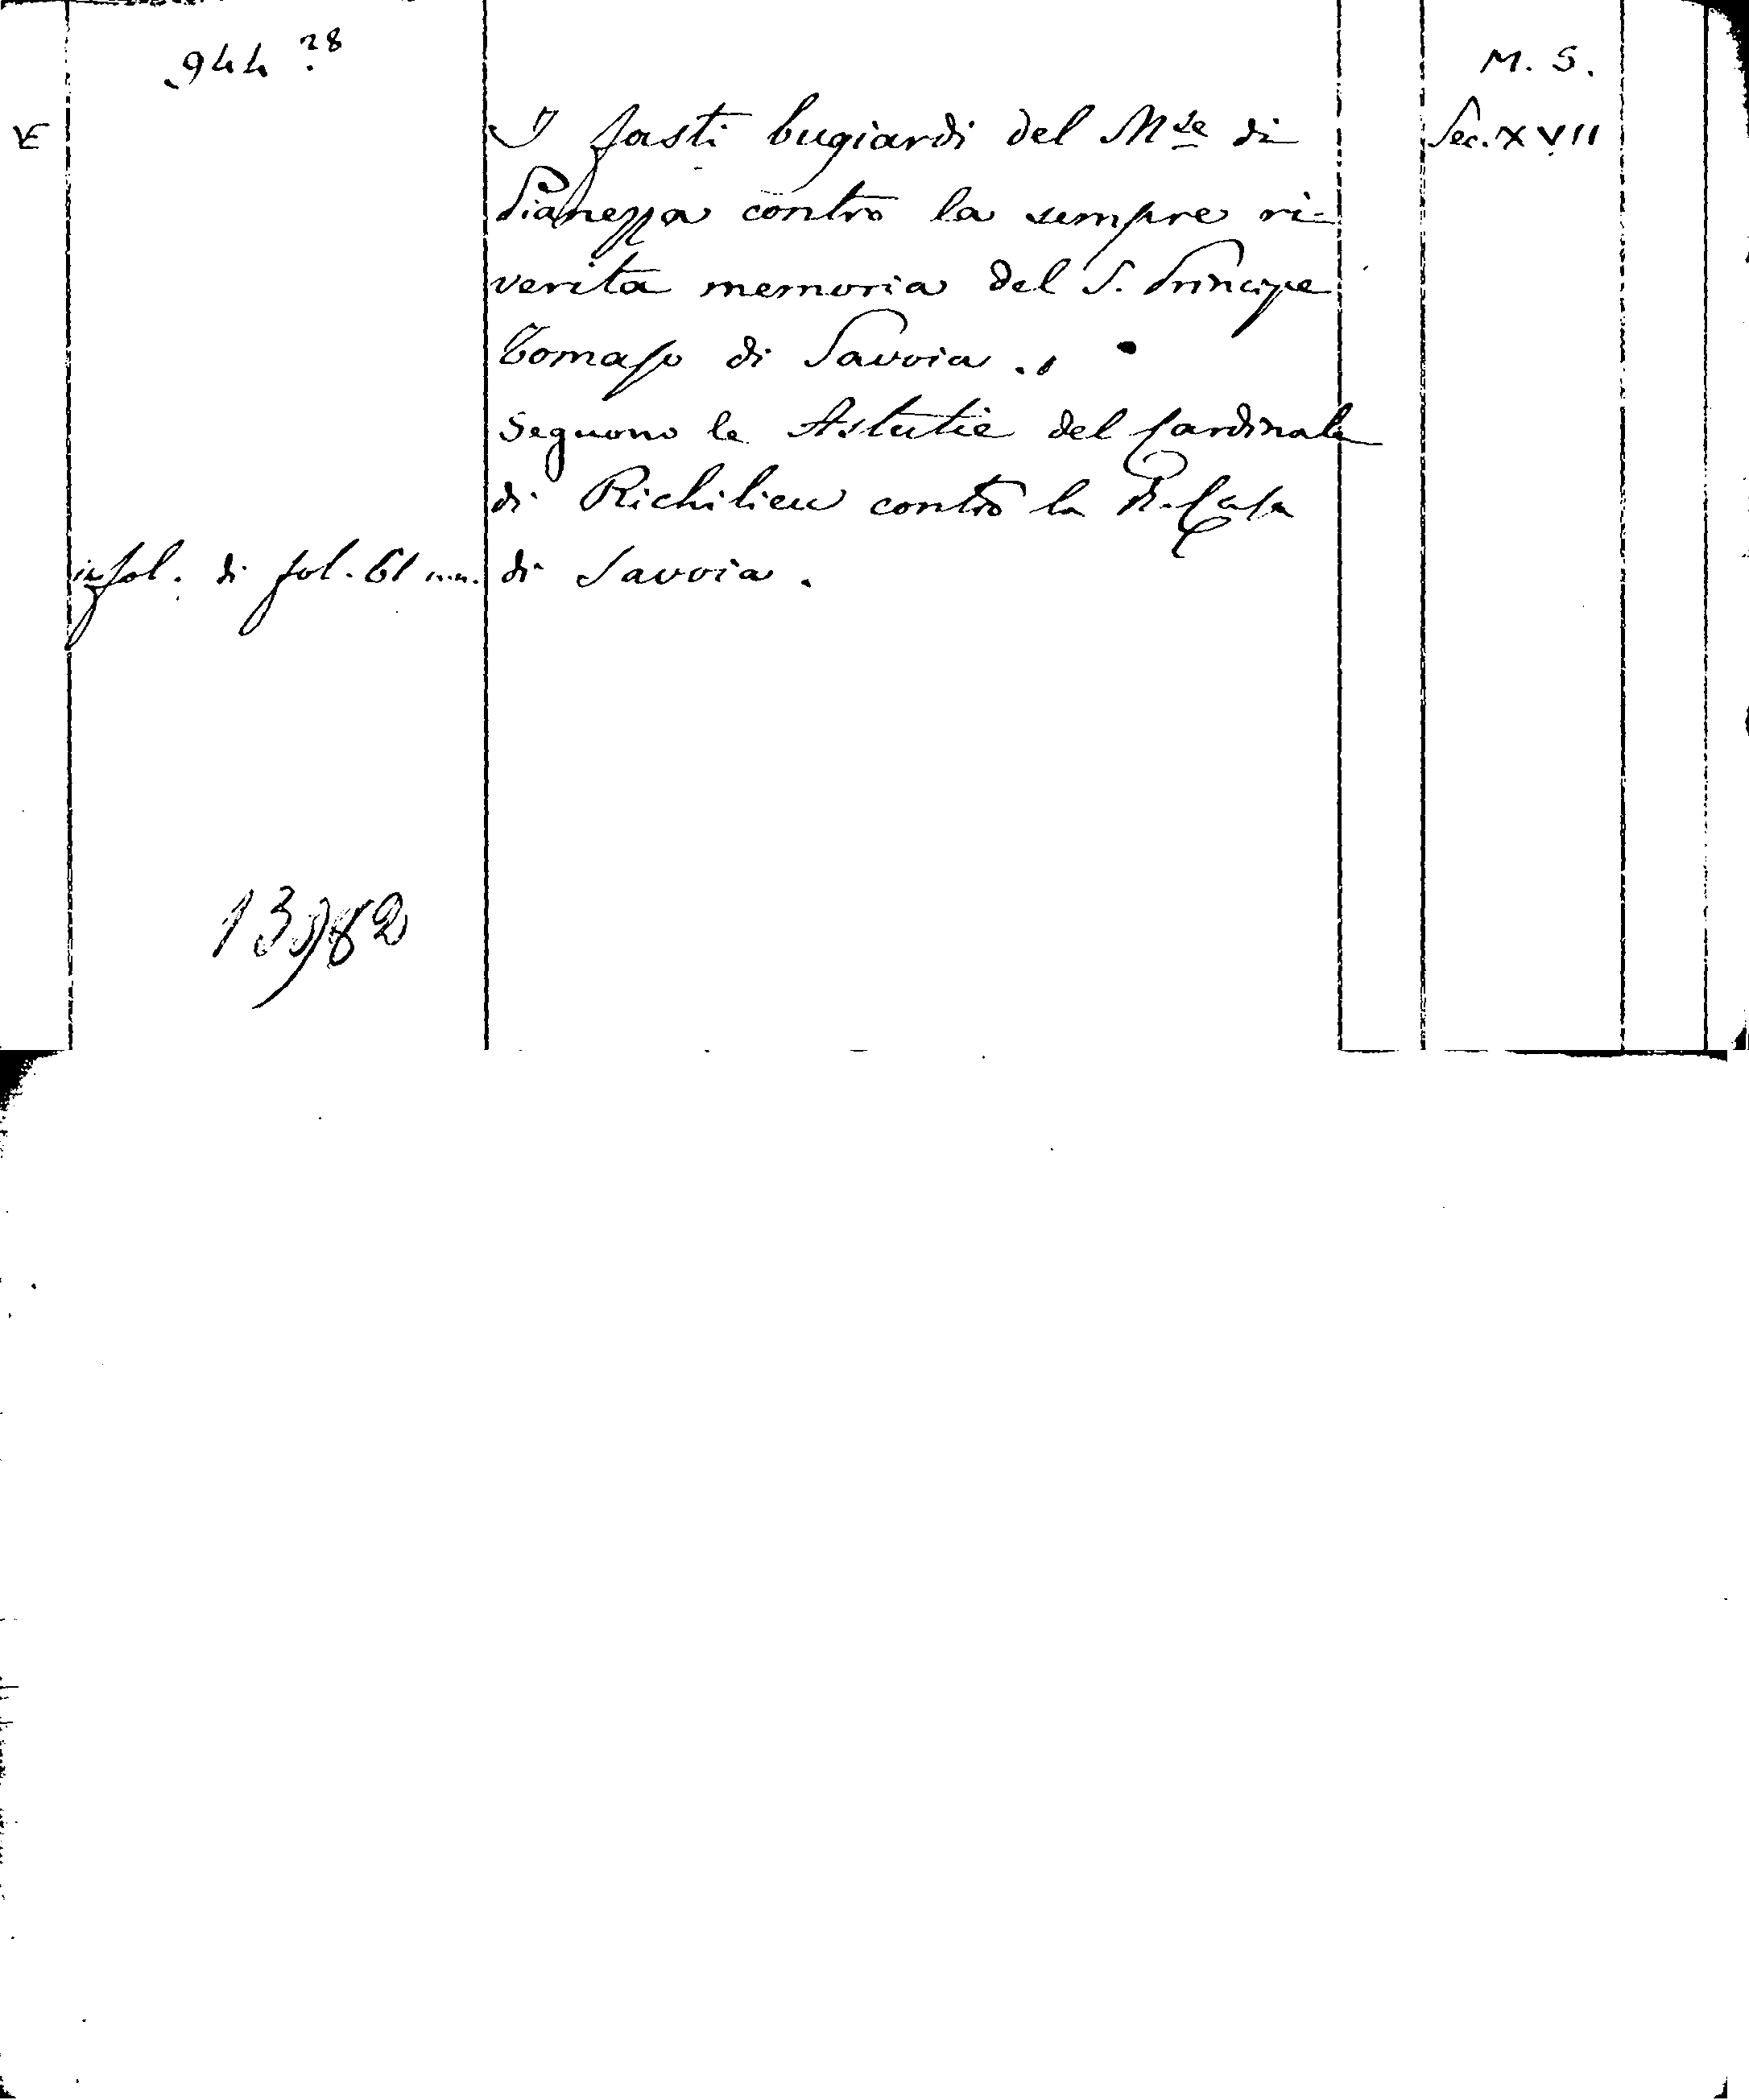 944.28
M. S.
I fasti bugiardi del Mse di
Sec. XVII
Pianezza contro la sempre ri-
verita memoria del S. Principe
Tomaso di Savoia.
Seguono le Astutie del Cardinale
di Richilieu contro la R. Casa
in fol. di fol. 61 n.n. di Savoia.